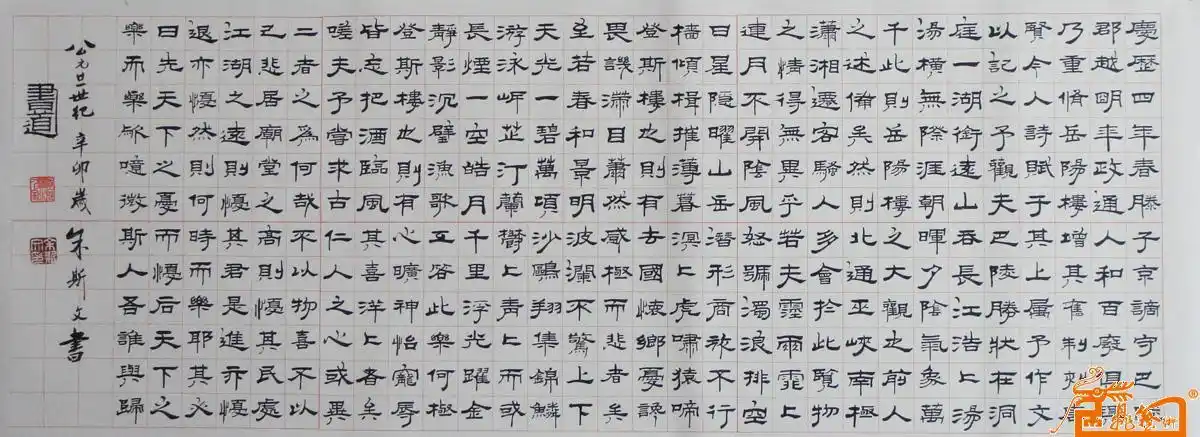 慶歷四年春滕子京謫守巴陵
郡越明年政通人和百廢俱興
乃重脩岳陽樓增其舊制刻唐
賢今人詩賦于其上屬予作文
以記之予觀夫巴陵勝狀在洞
庭一湖銜遠山吞長江浩々湯
湯橫無際涯朝暉夕陰氣象萬
千此則岳陽樓之大觀也前人
之述備矣然則北通巫峽南極
瀟湘遷客騷人多會於此覽物
之情得無異乎若夫霪雨霏々
連月不開陰風怒號濁浪排空
日星隱曜山岳潛形商旅不行
檣傾楫摧薄暮溟々虎嘯猿啼
登斯樓也則有去國懷鄉憂讒
畏譏滿目蕭然感極而悲者矣
至若春和景明波瀾不驚上下
天光一碧萬頃沙鷗翔集錦鱗
游泳岸芷汀蘭鬱々青々而或
長煙一空皓月千里浮光躍金
靜影沉璧漁歌互答此樂何極
登斯樓也則有心曠神怡寵辱
皆忘把酒臨風其喜洋々者矣
嗟夫予嘗求古仁人之心或異
二者之為何哉不以物喜不以
己悲居廟堂之高則憂其民處
江湖之遠則憂其君是進亦憂
退亦憂然則何時而樂耶其必
曰先天下之憂而憂后天下之
樂而樂歟噫微斯人吾誰與歸
公元廿世紀辛卯歲朱斯文書
書道